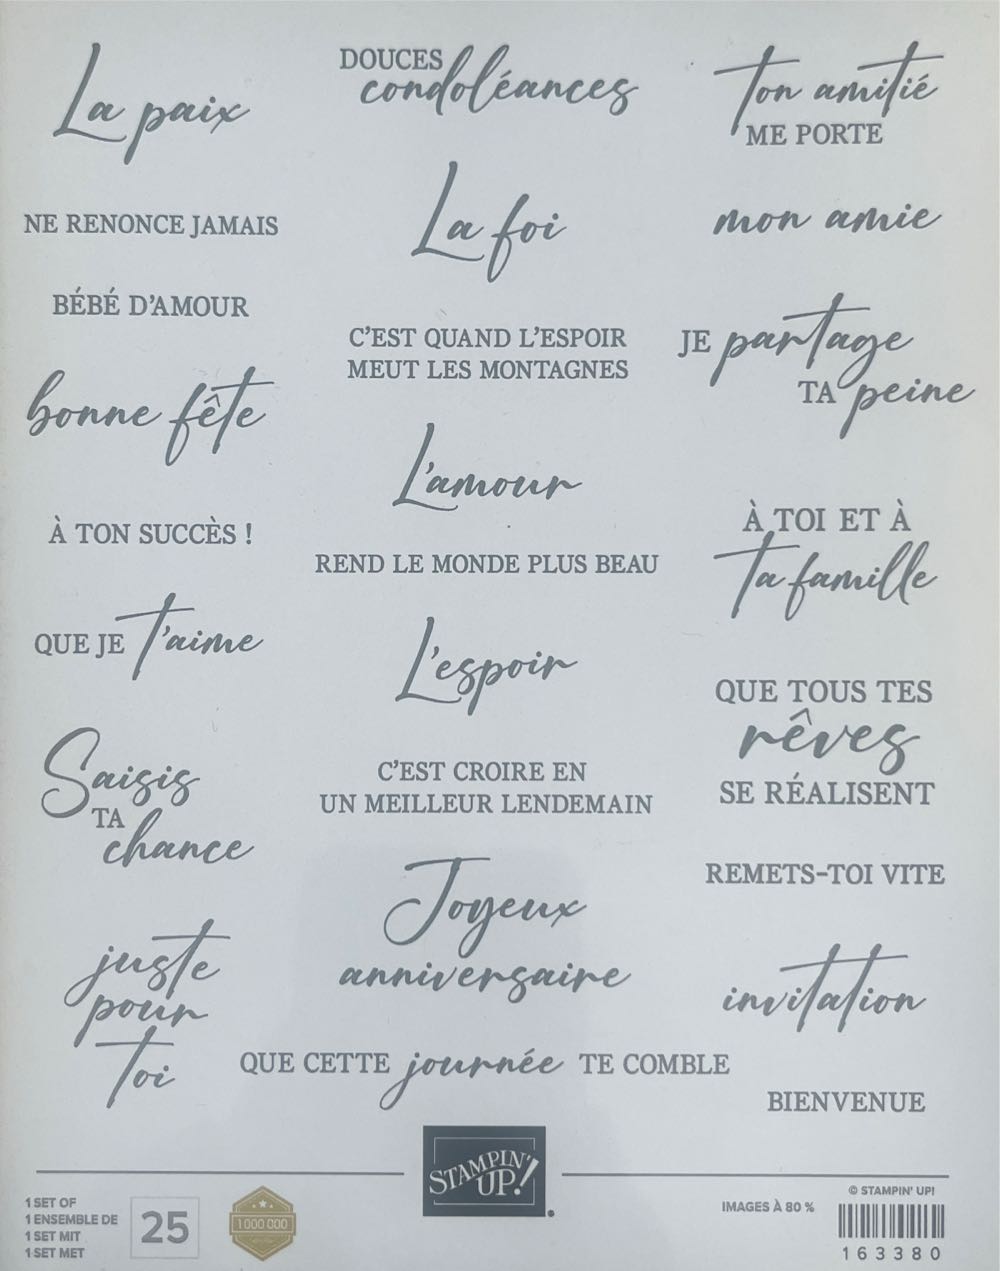 La paix
NE RENONCE JAMAIS
BÉBÉ D'AMOUR
bonne fête
À TON SUCCÈS !
QUE JE t'aime
Saisis
TA
chance
juste
pour
toi
DOUCES
condoléances
La foi
C'EST QUAND L'ESPOIR
MEUT LES MONTAGNES
L'amour
REND LE MONDE PLUS BEAU
L'espoir
C'EST CROIRE EN
UN MEILLEUR LENDEMAIN
Joyeux
anniversaire
QUE CETTE journée TE COMBLE
ton amitié
ME PORTE
mon amie
JE partage
TA peine
À TOI ET À
ta famille
QUE TOUS TES
rêves
SE RÉALISENT
REMETS-TOI VITE
invitation
BIENVENUE
1 SET OF
1 ENSEMBLE DE
1 SET MIT
1 SET MET
25
1 000 000
STAMPIN'
UP!
IMAGES À 80 %
© STAMPIN' UP!
163380